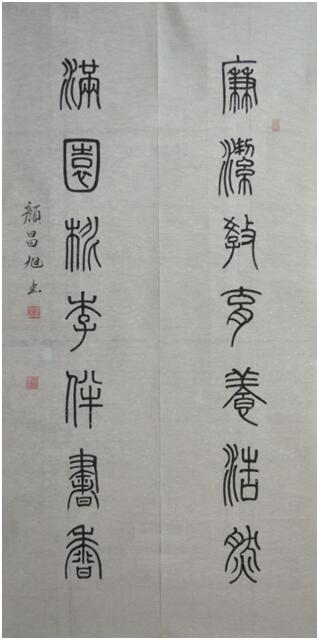 廉潔教育養浩然
滿園桃李伴書香
顏昌旭书